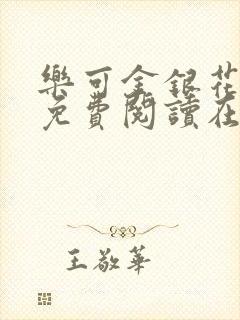 樂可金銀花
免費閱讀在
王敬華